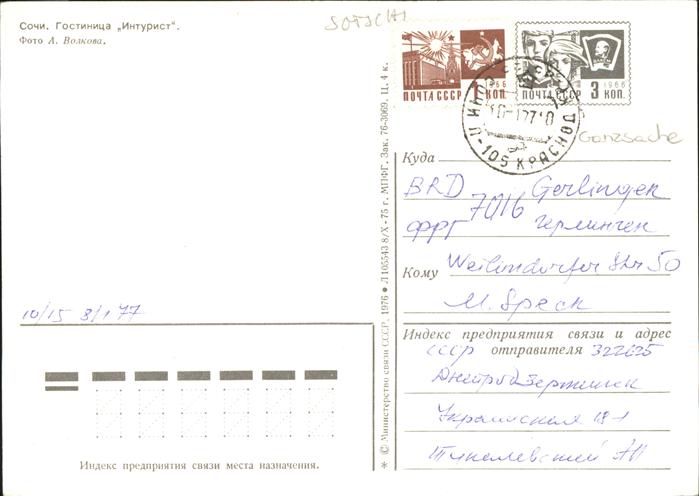 Сочи. Гостиница „Интурист“.
Фото А. Волкова.
SOTSCHI
1966
ПОЧТА СССР КОП.
1966
ПОЧТА СССР 3 КОП.
Л-105 КРАСНОД
Ganzsache
Куда
BRD 7016 Gerlingen
ФРГ Герлинген
Кому Weilimdorfer Str 50
M. Speck
10/15 8/1 77
Индекс предприятия связи и адрес
отправителя 322625
СССР
Днепродзержинск
Украинская 18-1
АП
Индекс предприятия связи места назначения.
* © Министерство связи СССР. 1976 ● Л 105543 8/X - 75 г. МПФГ. Зак. 76-3069. Ц. 4 к.